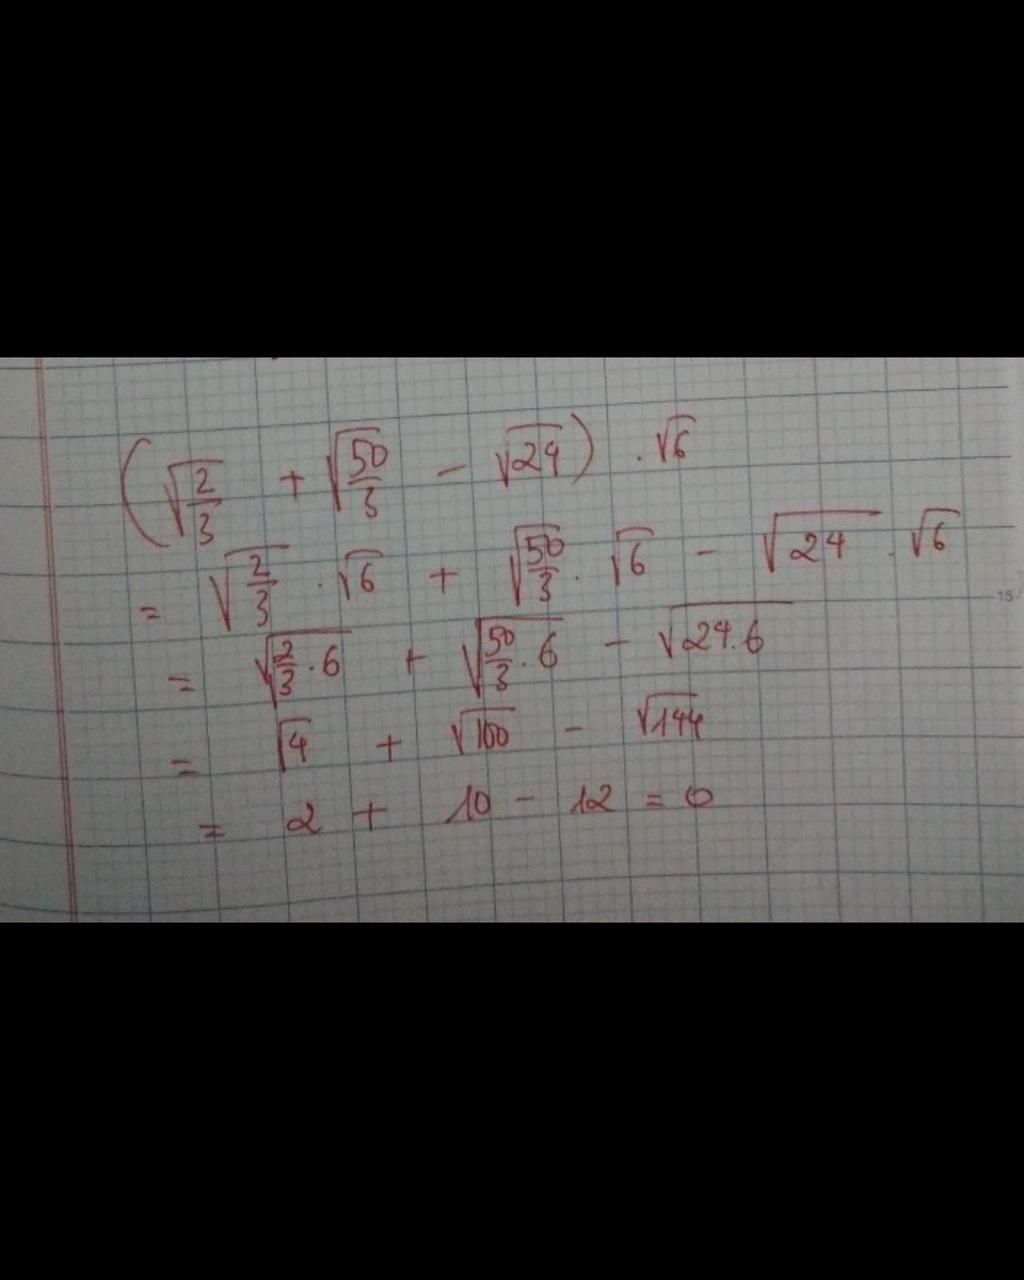 (√(2/3) + √(50/3) - √24) . √6
= √(2/3) . √6 + √(50/3) . √6 - √24 . √6
= √(2/3 . 6) + √(50/3 . 6) - √(24.6)
= √4 + √100 - √144
= 2 + 10 - 12 = 0
15